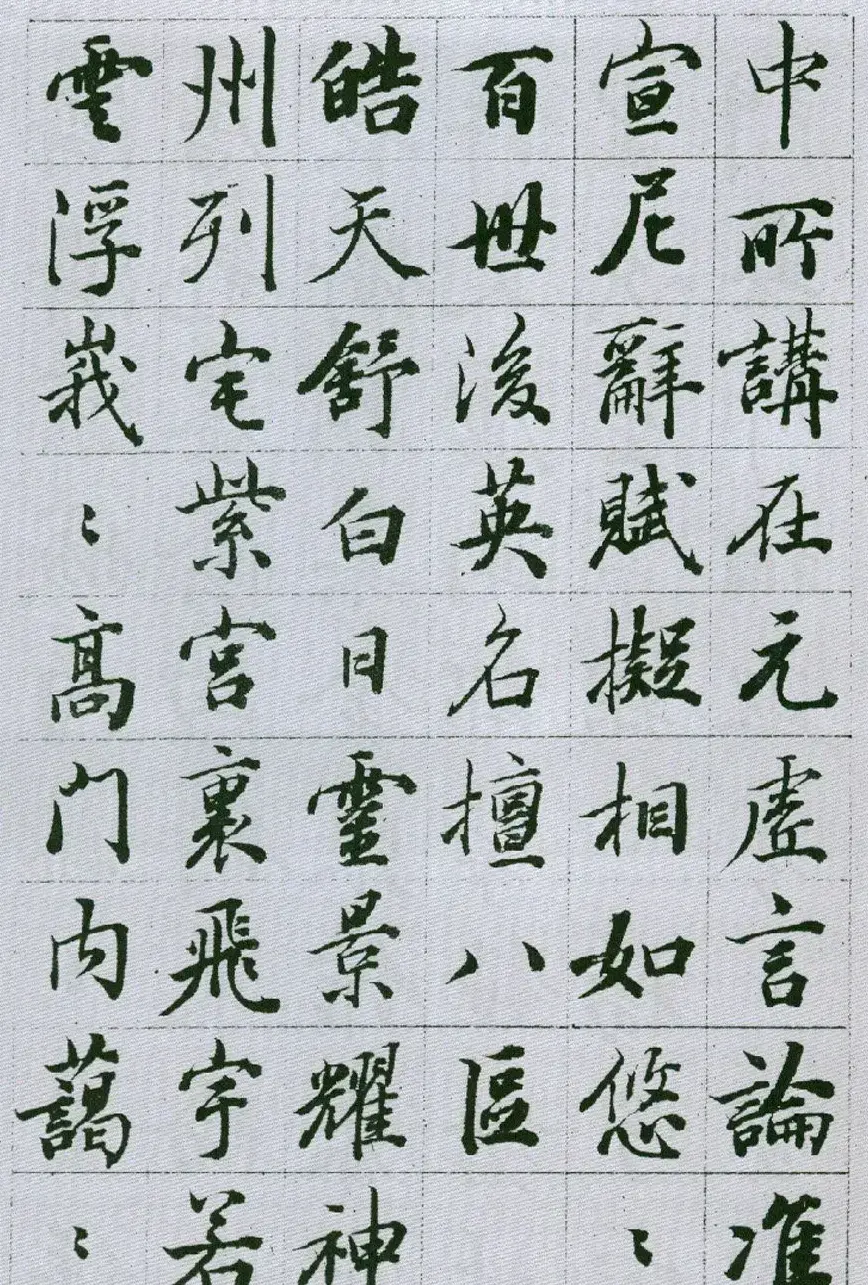 中所講在元虛言論准
宣尼辭賦擬相如悠〻
百世後英名擅八區
皓天舒白日靈景耀神
州列宅紫宮裏飛宇若
雲浮峩〻高門內藹〻